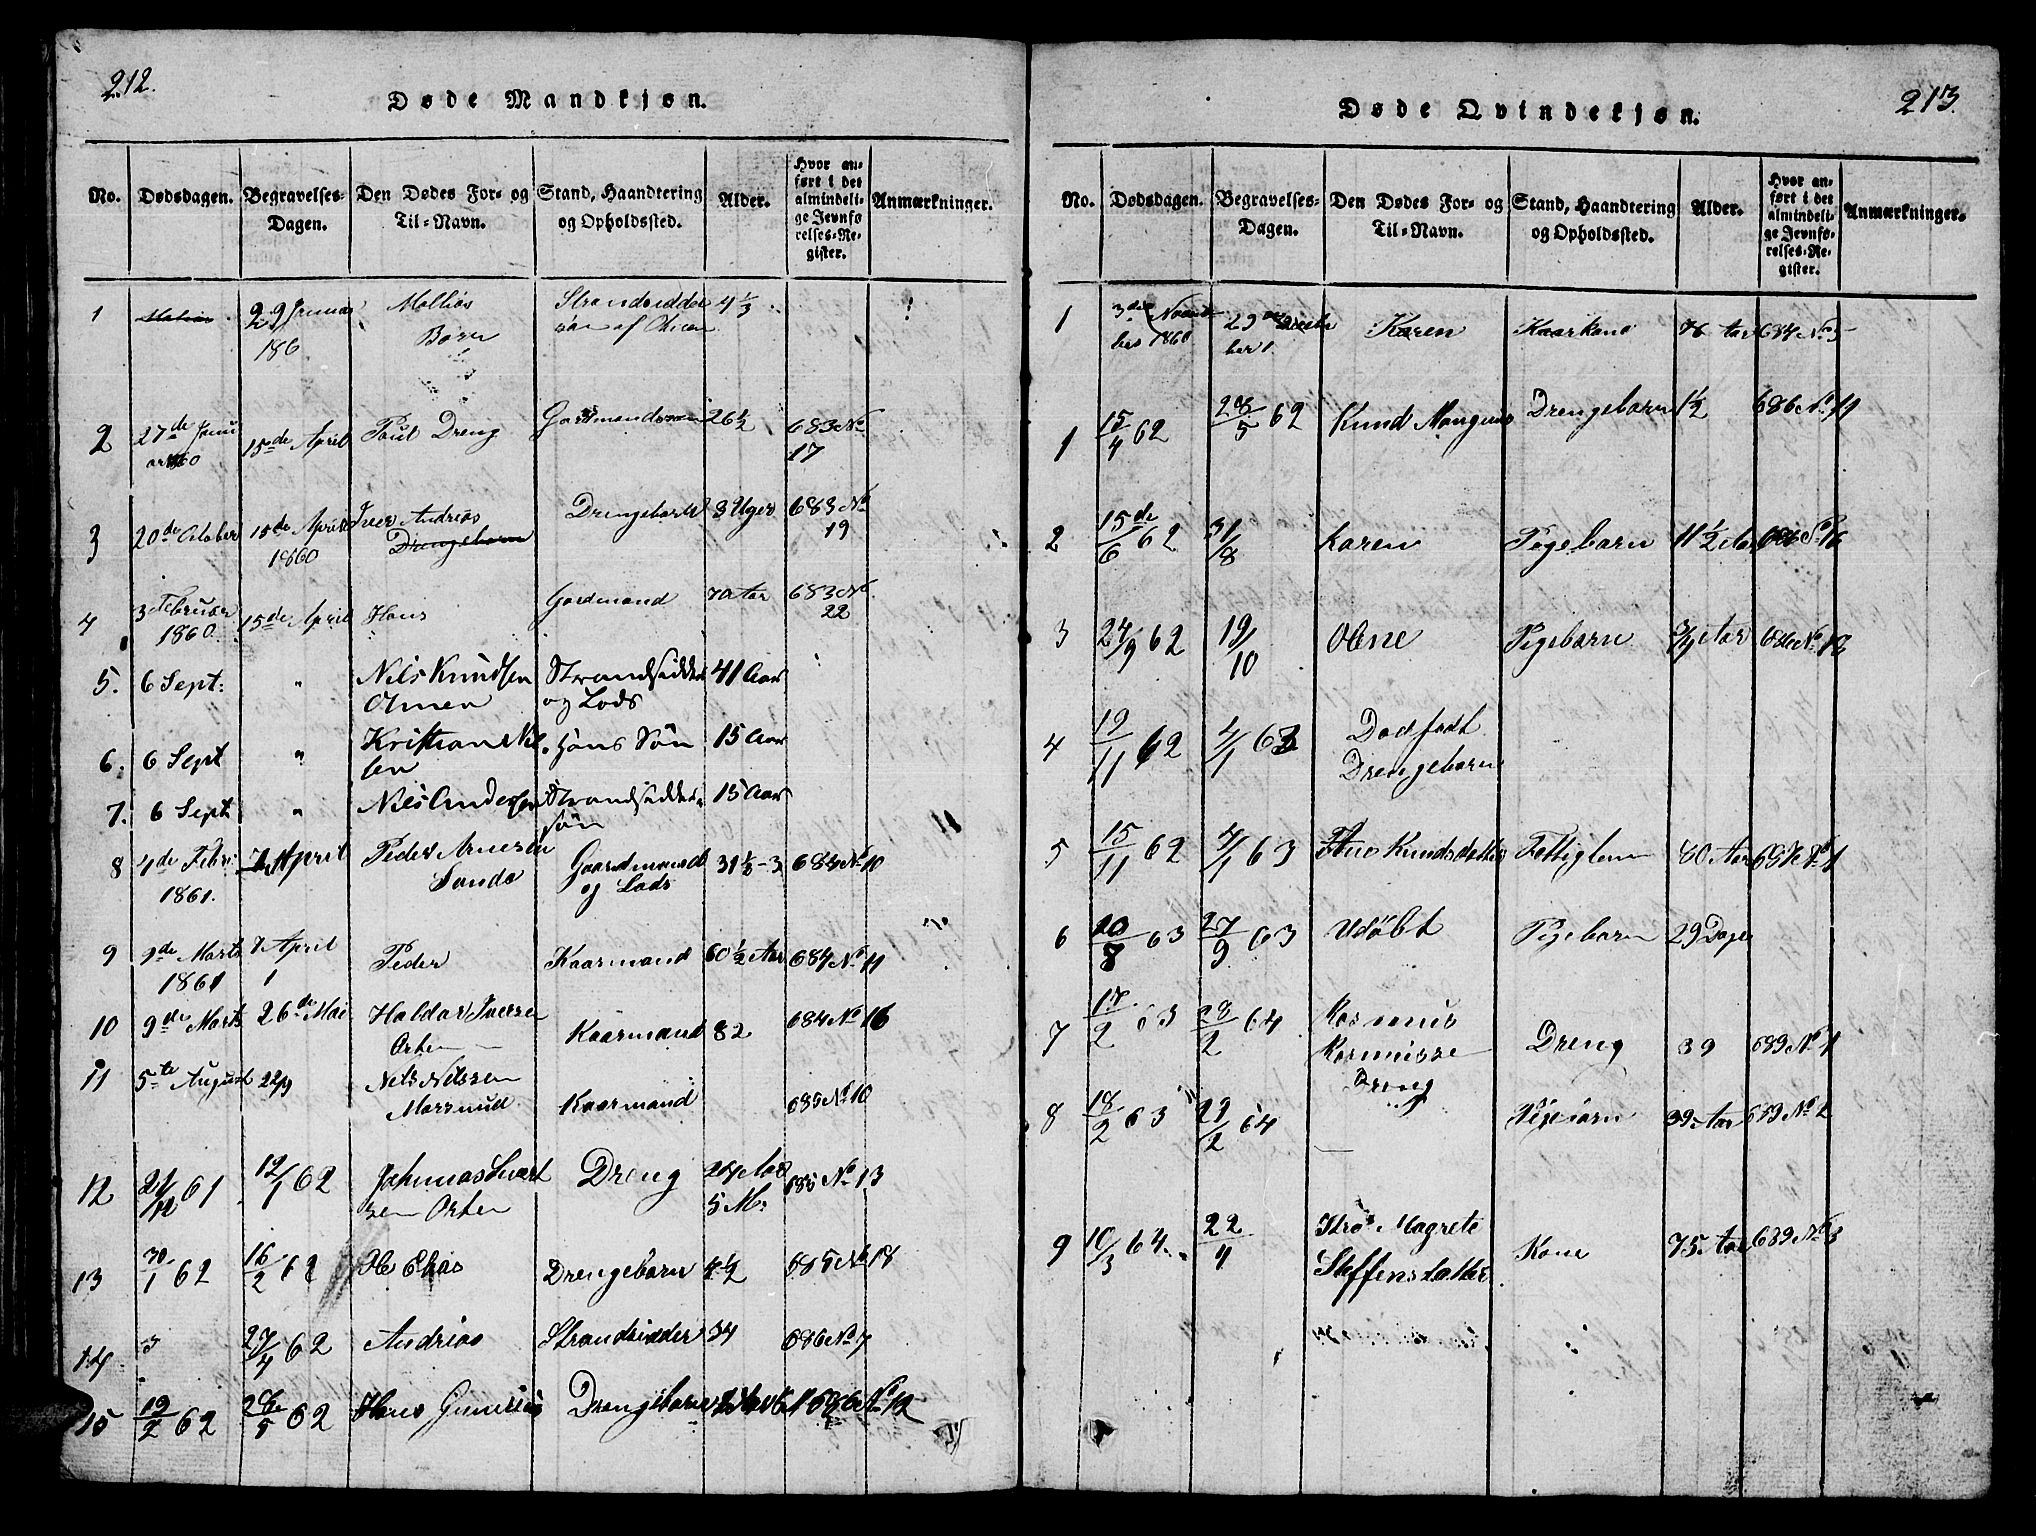 212.
Døde Mandkjøn.
No. Dødsdagen. Begravelses-Dagen. Den Dødes For- og Til-Navn. Stand, Haandtering og Opholdssted. Alder. Hvor anført i det almindelige Jevnførelses-Register. Anmærkninger.
1 29 Januar 186 Mathias Børn Strandsidder 4 1/3
2 27de Januar 1860 15de April Poul Dreng Gaardmandssøn 26 1/2 683 No 17
3 20de October 15de April 1860 Iver Andrias Drengebarn Drengebarn 3 Uger 683 No 19
4 3 Februar 1860 15de April Hans Gardmand 70 Aar 683 No 22
5. 6 Sept: " Nils Knudsen Strandsidder og Lods 41 Aar
6. 6 Sept " Kristian Nilsen Hans Søn 15 Aar
7. 6 Sept " Nils Andersen Strandsidders Søn 15 Aar
8 4de Febr: 1861. 7 April Peder Arnesen Sando Gaardmand og Lods 31 1/2 - 3 684 No 10
9 1de Marts 1861 7 April 1 Peder Kaarmand 60 1/2 Aar 684 No 11
10 9de Marts 26de Mai Haldor Iversen Orten Kaarmand 82 684 No 16
11 5te August 22/9 Nels Nelssen Kaarmand 685 No 10
12 21/12 61 12/1 62 Johannas Orten Dreng 24 Aar 5 M: 685 No 13
13 30/1 62 16/2 62 Ole Elias Drengebarn 4 1/2 685 No 17
14 3 27/4 62 Andrias Strandsidder 34 686 No 7
15 19/2 62 28/5 62 Hans Drengebarn 686 No 12
213.
Døde Qvindekjøn.
No. Dødsdagen. Begravelses-Dagen. Den Dødes For- og Til-Navn. Stand, Haandtering og Opholdssted. Alder. Hvor anført i det almindelige Jevnførelses-Register. Anmærkninger.
1 3de November 1860 29 December Karen Kaarkone 76 Aar 684 No 5
1 15/4 62 28/5 62 Knud Mangnus Drengebarn 1 1/2 686 No 11
2 15de/6 62 31/8 Karen Pigebarn 11 1/2 Aar 686 No 16
3 24/9 62 19/10 Oline Pigebarn 3/4 Aar 686 No 18
4 19/11 62 4/1 63 Dødfødt Drengebarn
5 15/11 62 4/1 63 Knudsdatter Fattiglem 80 Aar 687 No 1
6 20/8 63 27/9 63 Udöbt Pigebarn 29 Dage
7 17/2 63 28/2 64 Rasmus Dreng Dreng 39 689 No 1
8 18/2 63 29/2 64 39 Aar 689 No 2
9 10/3 64. 22/4 Magrete Steffensdatter Kone 75 Aar 689 No 3